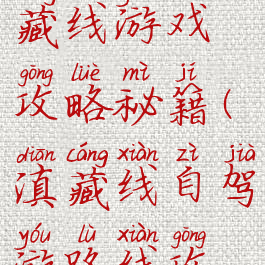 藏线游戏
gōng lüè mì jí
攻略秘籍(
diān cáng xiàn zì jià
滇藏线自驾
yóu lù xiàn gōng
游路线攻